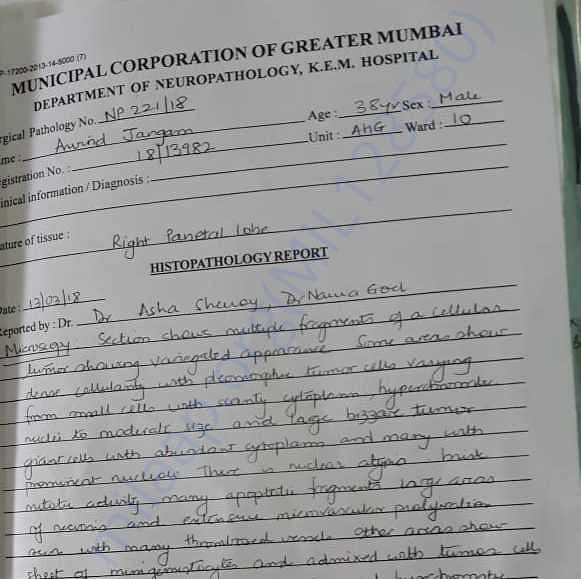 P-17200-2013-14-5000 (7)
MUNICIPAL CORPORATION OF GREATER MUMBAI
DEPARTMENT OF NEUROPATHOLOGY, K.E.M. HOSPITAL
rgical Pathology No. NP 221/18
Age : 38yr Sex : Male
me : Jangam
Unit : AHG Ward : 10
egistration No. : 18/13982
inical information / Diagnosis :
ature of tissue : Right Parietal lobe
HISTOPATHOLOGY REPORT
Date : 13/03/18
Reported by : Dr. Dr Asha Shenoy, Dr Naina Goel
Microscopy: Section shows multiple fragments of a cellular
tumor showing variegated appearance Some areas show
dense cellularity with pleomorphic tumor cells varying
from small cells with scanty cytoplasm, hyperchromatic
nuclei to moderate size and large bizzare tumor
giant cells with abundant cytoplasm and many with
prominent nucleoli There is nuclear atypia brisk
mitotic activity many apoptotic fragments large areas
of necrosis and extensive microvascular proliferation
seen with many thrombosed vessels other areas show
sheet of minigemistocytes and admixed with tumor cells
milaap.org(MIL128580)